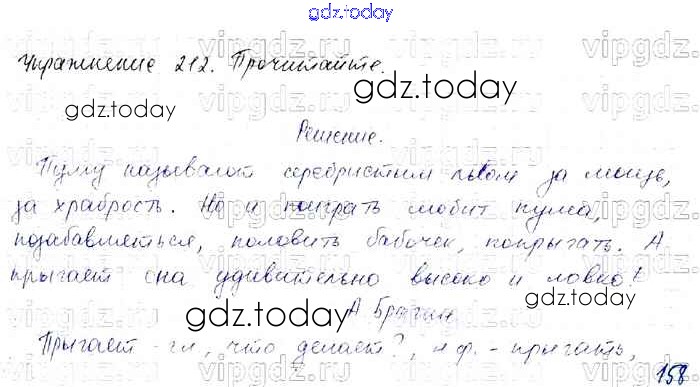 gdz.today
Упражнение 212. Прочитайте.
Решение.
Пуму называют серебристым львом за мощь,
за храбрость. Но и поиграть любит пума,
позабавляться, половить бабочек, попрыгать. А
прыгает она удивительно высоко и ловко!
А Брагин
Прыгает - гл., что делает?, н.ф. - прыгать,
158